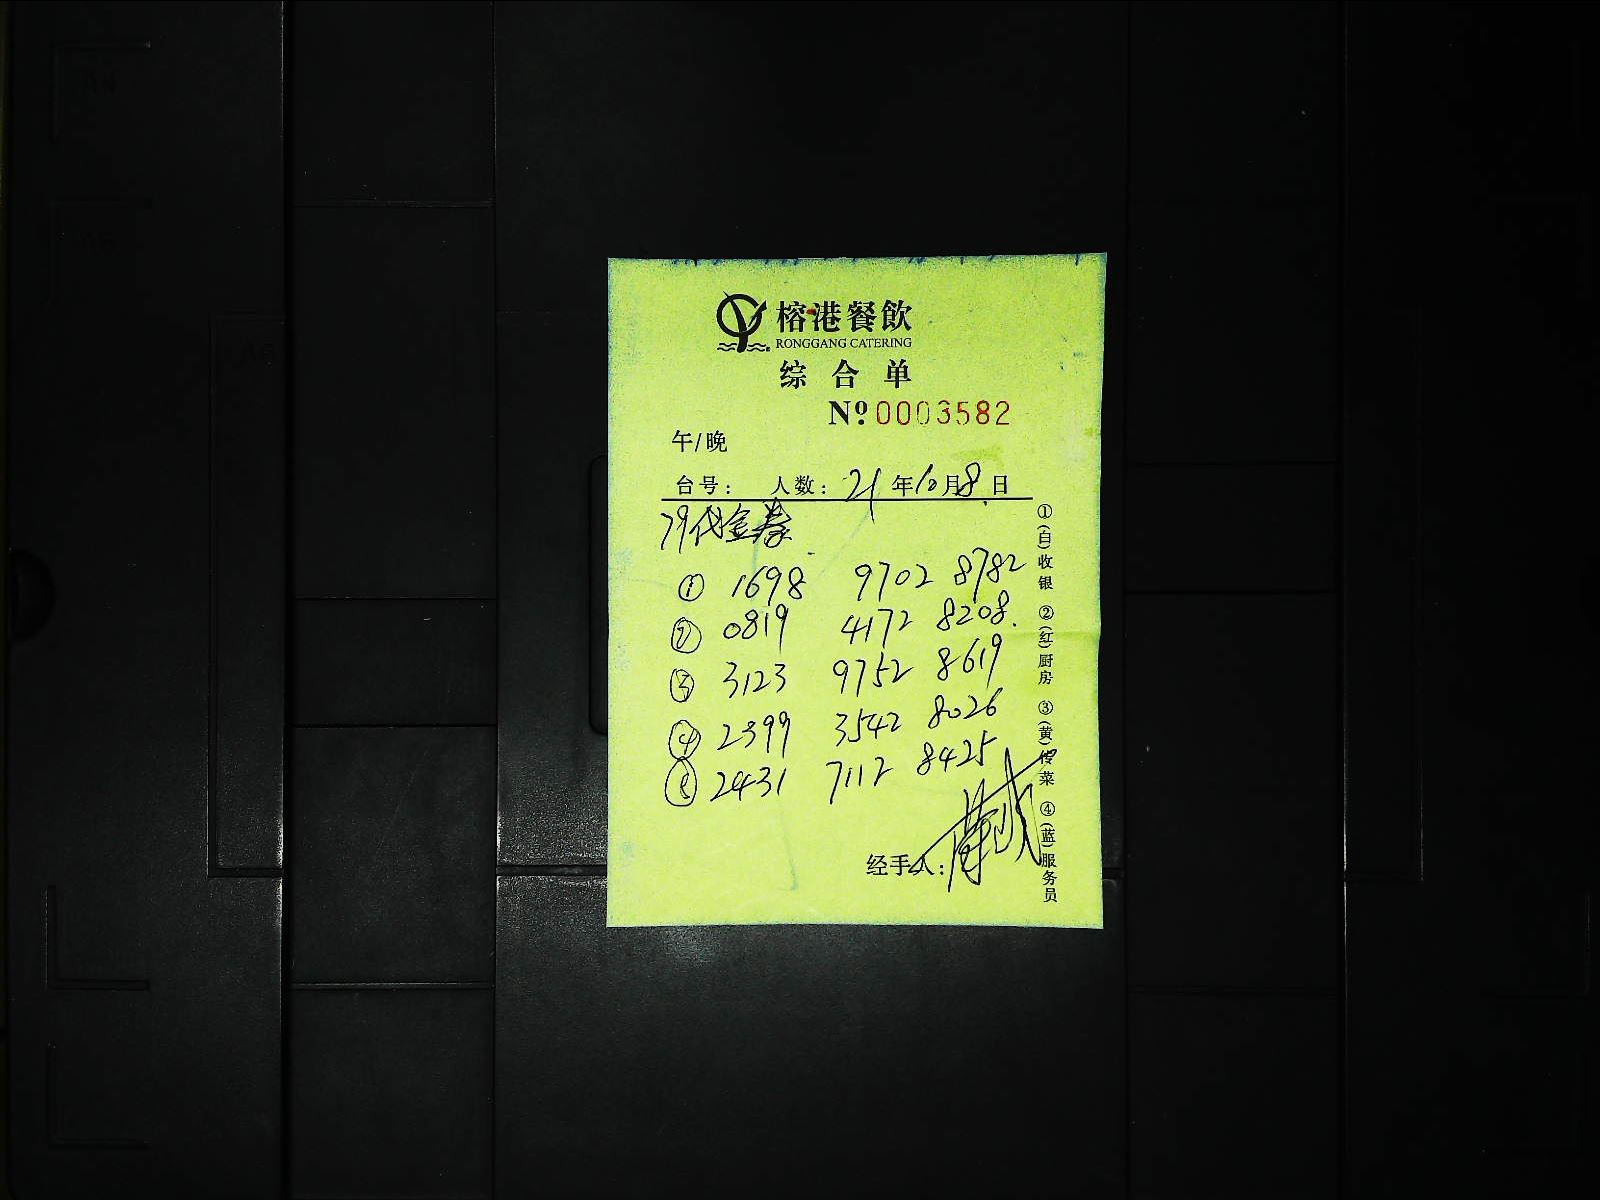 榕港餐飲
RONGGANG CATERING
综合单
Nº 0003582
午/晚
台号: 人数: 21年10月8日
79代金券
① 1698 9702 8782
② 0819 4172 8208.
③ 3123 9752 8619
④ 2399 3542 8026
⑤ 2431 7112 8425
经手人:
①(白)收银 ②(红)厨房 ③(黄)传菜 ④(蓝)服务员